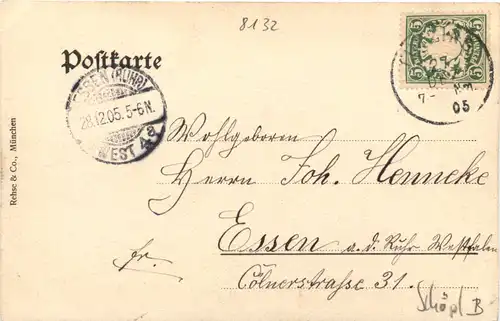 8132
Postkarte
ESSEN (RUHR)
28.12.05. 5-6N.
WEST 4a
05
Rehse & Co., München
Wohlgeboren
Herrn Joh. Henneke
Essen a. d. Ruhr Westfalen
fr.
Cölnerstraße 31.
Schöpl B